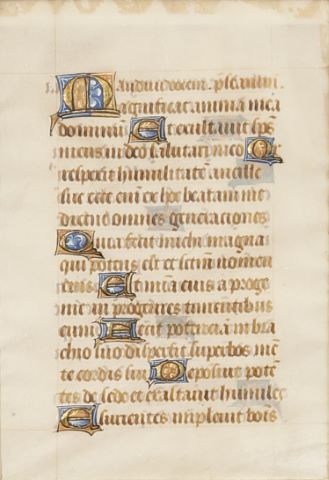 M anduc uocem. ps̄. canūr.
agnificat anima mea
dominū Et exultauit sp̄s
meus in deo salutari meo Q
respexit humilitatē ancille
sue ecce eni ex hoc beatam me
dicent omnes generaciones
Quia fecit michi magna
qui potens est et sctm̄ nomen
eius Et mīa eius a proge
nie in progenies timentibus
eum Fecit potenciā in bra
chio suo dispersit superbos mē
te cordis sui Deposuit potē
tes de sede et exaltauit humiles
Esurientes impleuit bois